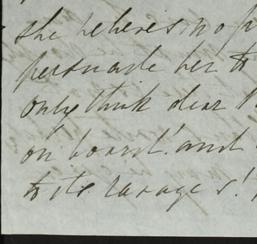 she believes no p
persuade her to
only think dear
on board! and
to its ravages!